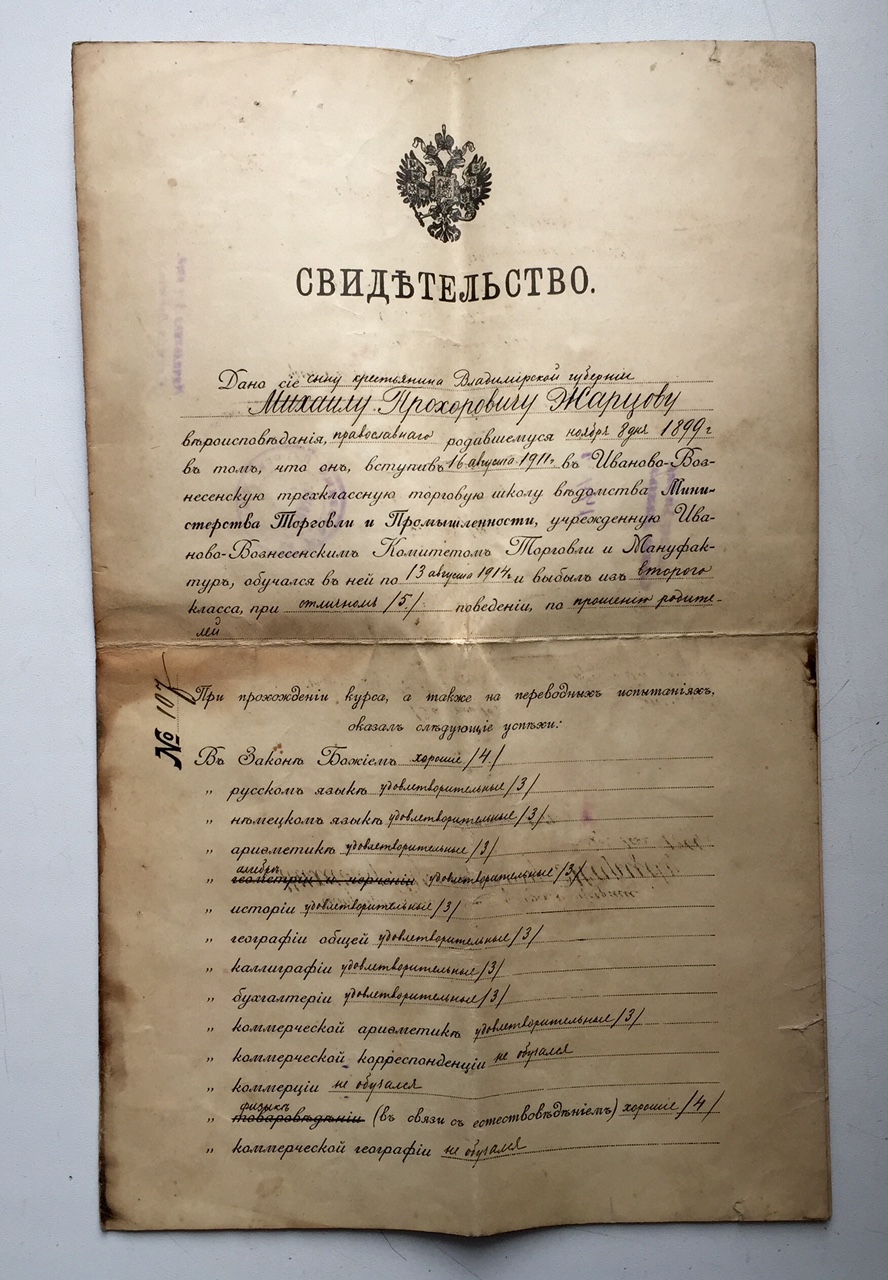 СВИДѢТЕЛЬСТВО.
Дано сіе сыну крестьянина Владимірской губерніи
Михаилу Прохоровичу Жарцову
вѣроисповѣданія, православнаго родившемуся ноября 8 дня 1899 г
въ томъ, что онъ, вступивъ 16 августа 1911 г. въ Иваново-Воз-
несенскую трехклассную торговую школу вѣдомства Мини-
стерства Торговли и Промышленности, учрежденную Ива-
ново-Вознесенскимъ Комитетомъ Торговли и Мануфак-
туръ, обучался въ ней по 13 августа 1914 г. и выбылъ изъ второго
класса, при отличномъ /5/ поведеніи, по прошенію родите-
лей
№ 107
При прохожденіи курса, а также на переводныхъ испытаніяхъ,
оказалъ слѣдующіе успѣхи:
Въ Законѣ Божіемъ хорошіе /4/
„ русскомъ языкѣ удовлетворительные /3/
„ нѣмецкомъ языкѣ удовлетворительные /3/
„ ариѳметикѣ удовлетворительные /3/
алгебрѣ
„ геометріи и черченіи удовлетворительные /3/
„ исторіи удовлетворительные /3/
„ географіи общей удовлетворительные /3/
„ каллиграфіи удовлетворительные /3/
„ бухгалтеріи удовлетворительные /3/
„ коммерческой ариѳметикѣ удовлетворительные /3/
„ коммерческой корреспонденціи не обучался
„ коммерціи не обучался
физикѣ
„ товаровѣдѣніи (въ связи съ естествовѣдѣніемъ) хорошіе /4/
„ коммерческой географіи не обучался